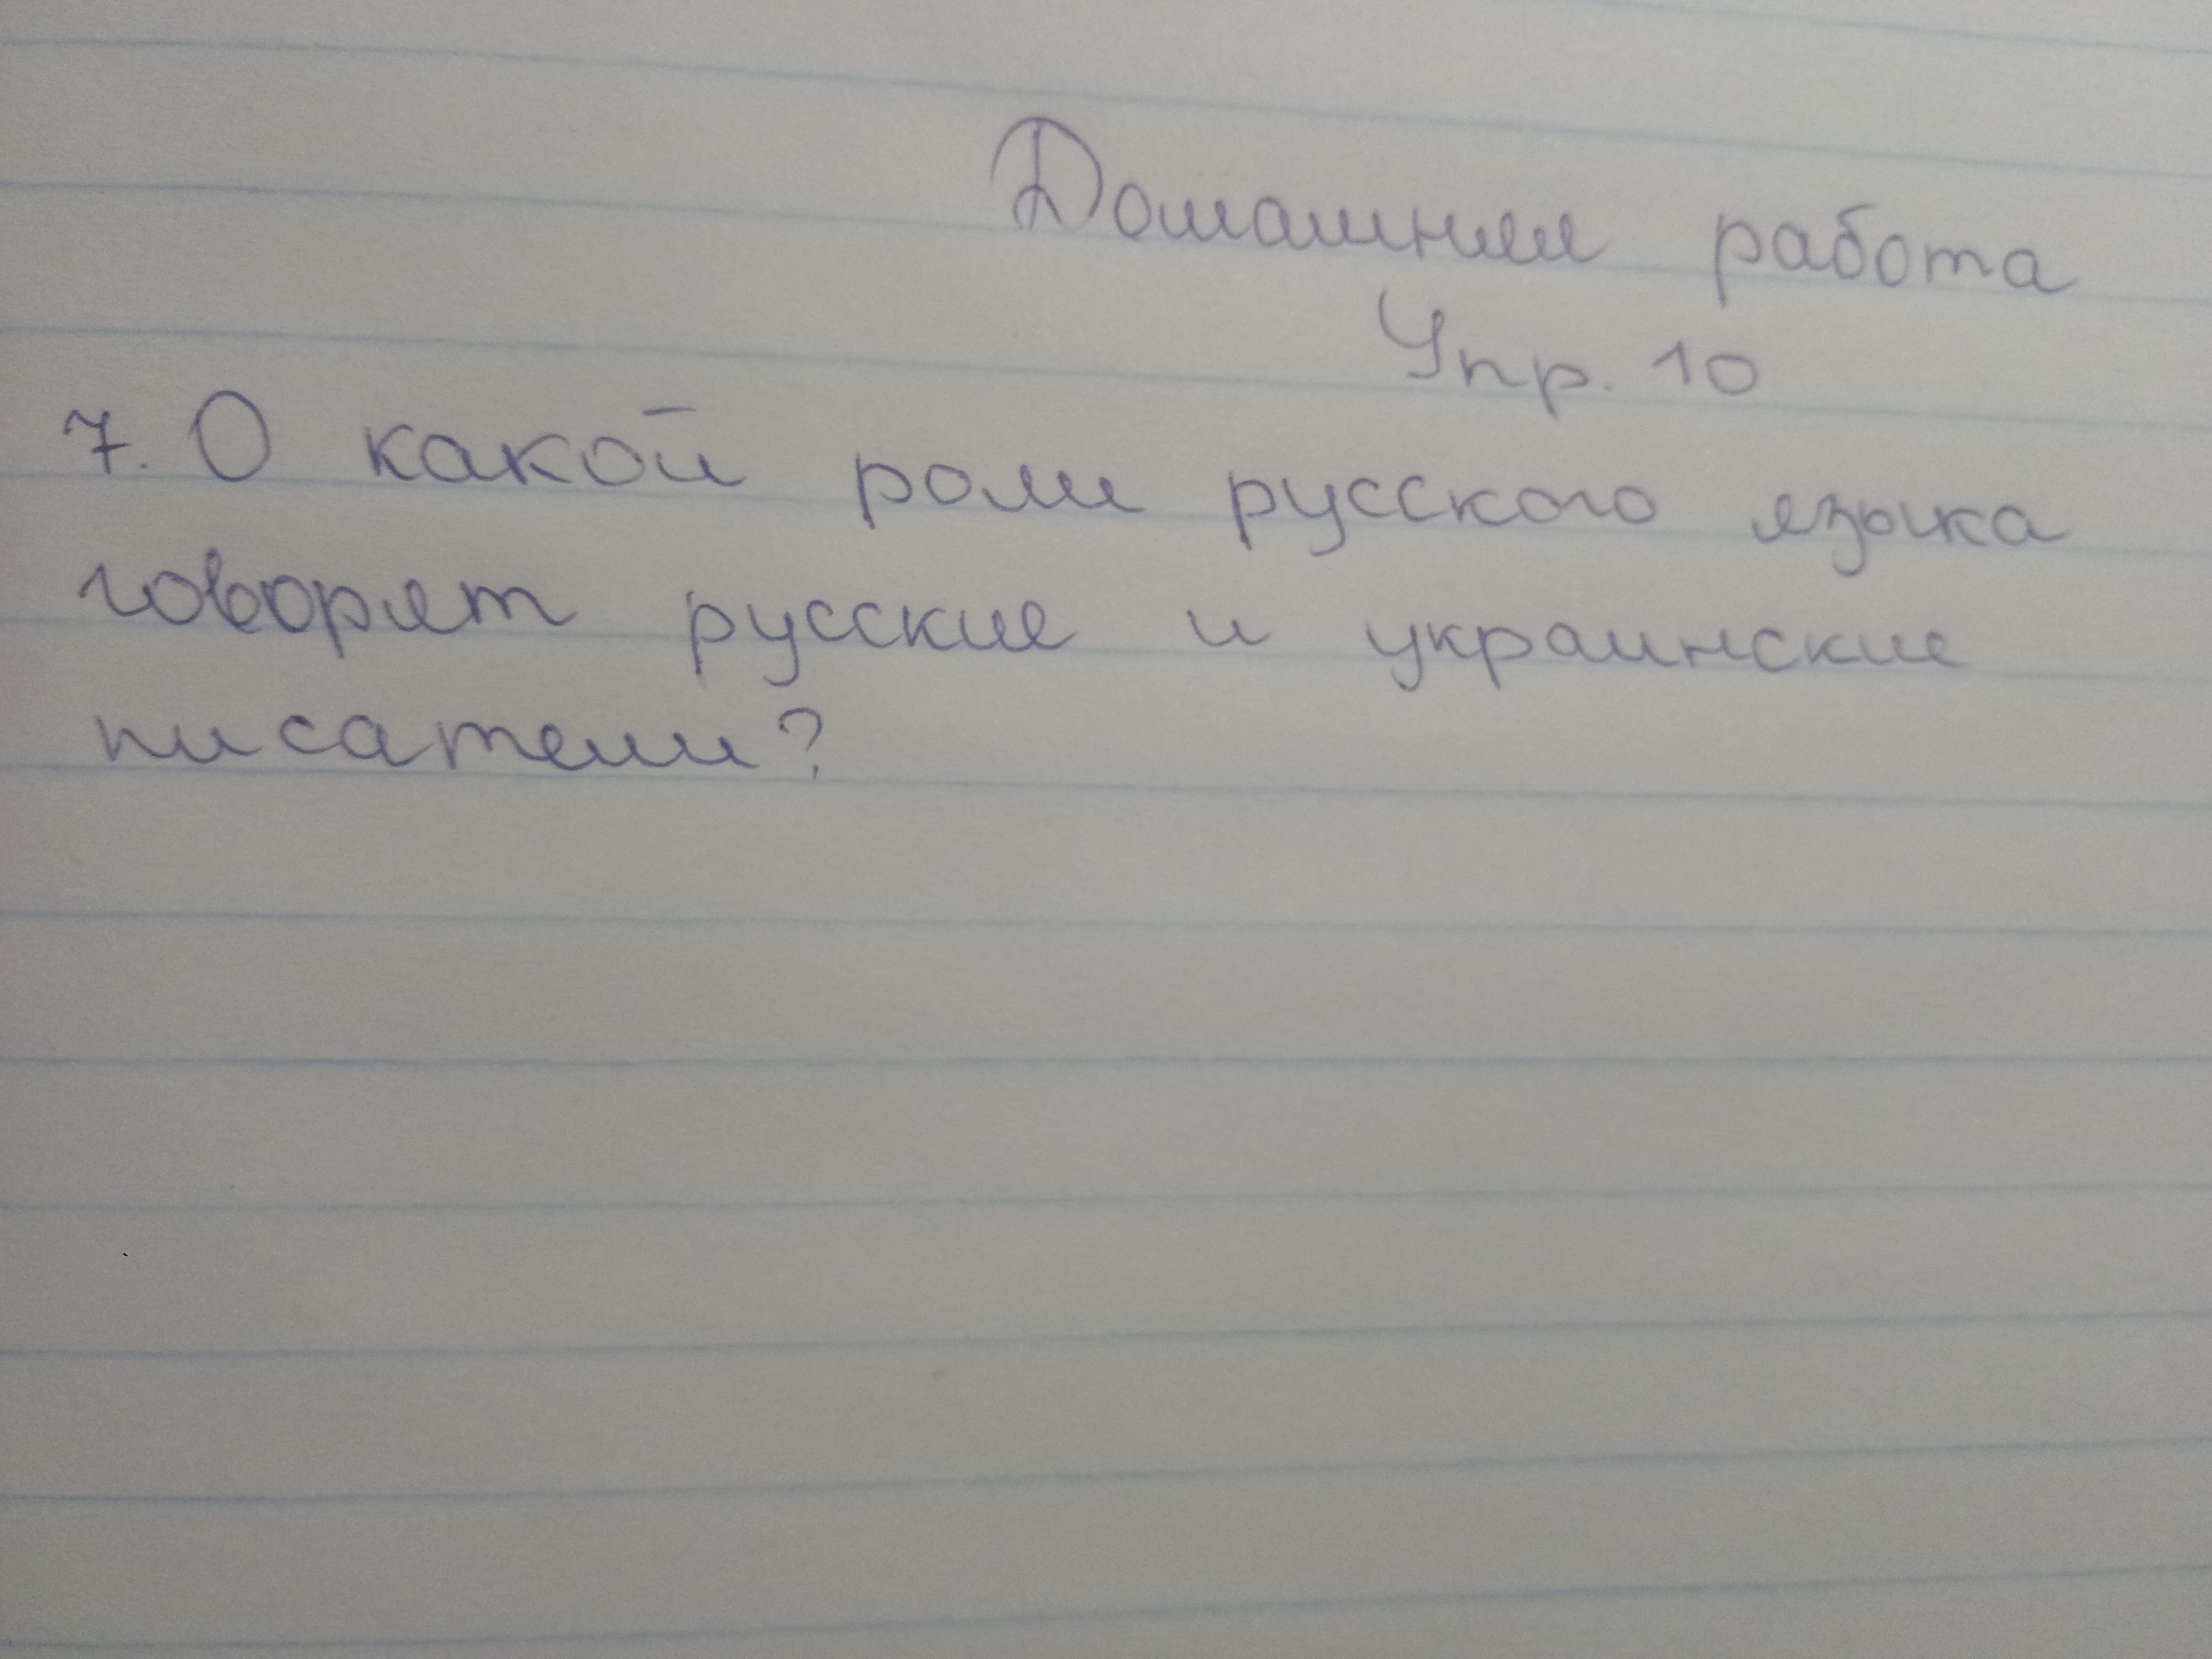 Домашняя работа
Упр. 10
7. О какой роли русского языка
говорят русские и украинские
писатели?